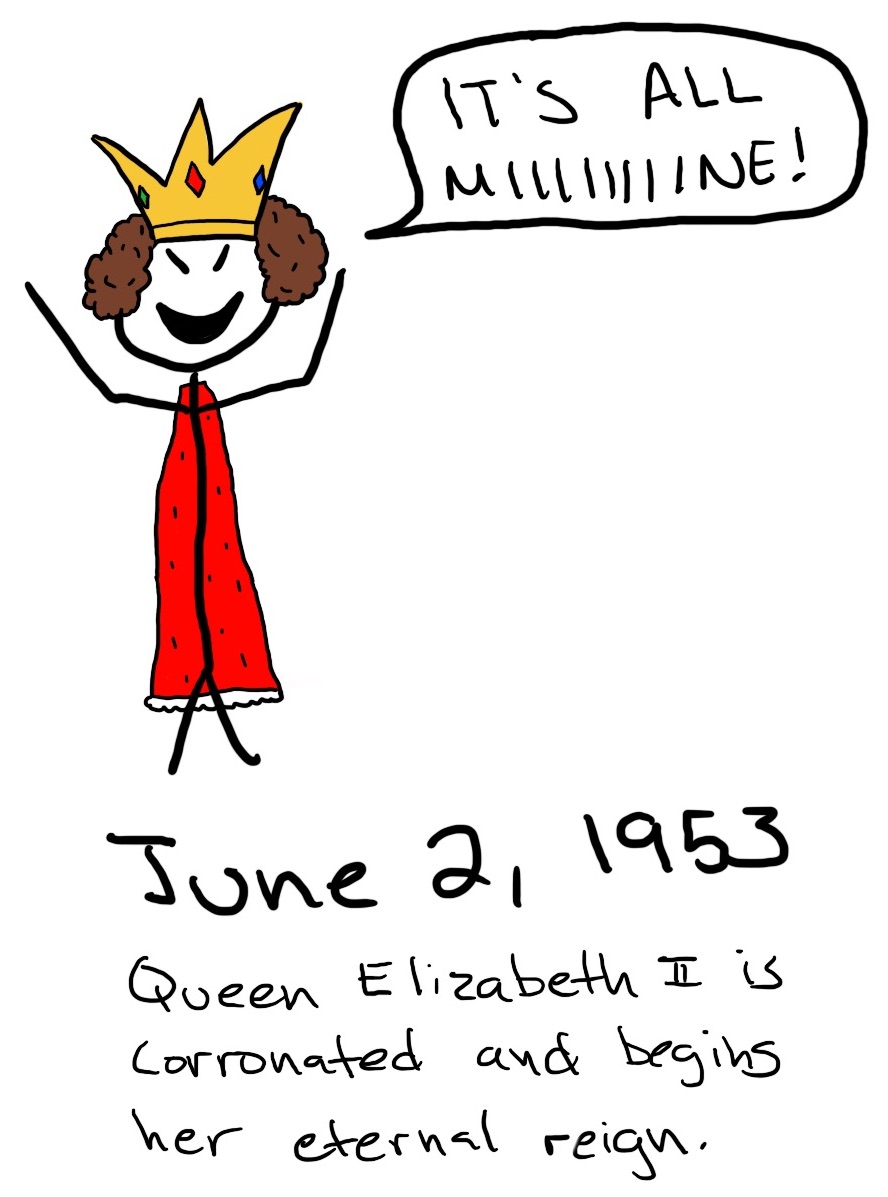 IT'S ALL
MIIIIIIIINE!
June 2, 1953
Queen Elizabeth II is
corronated and begins
her eternal reign.